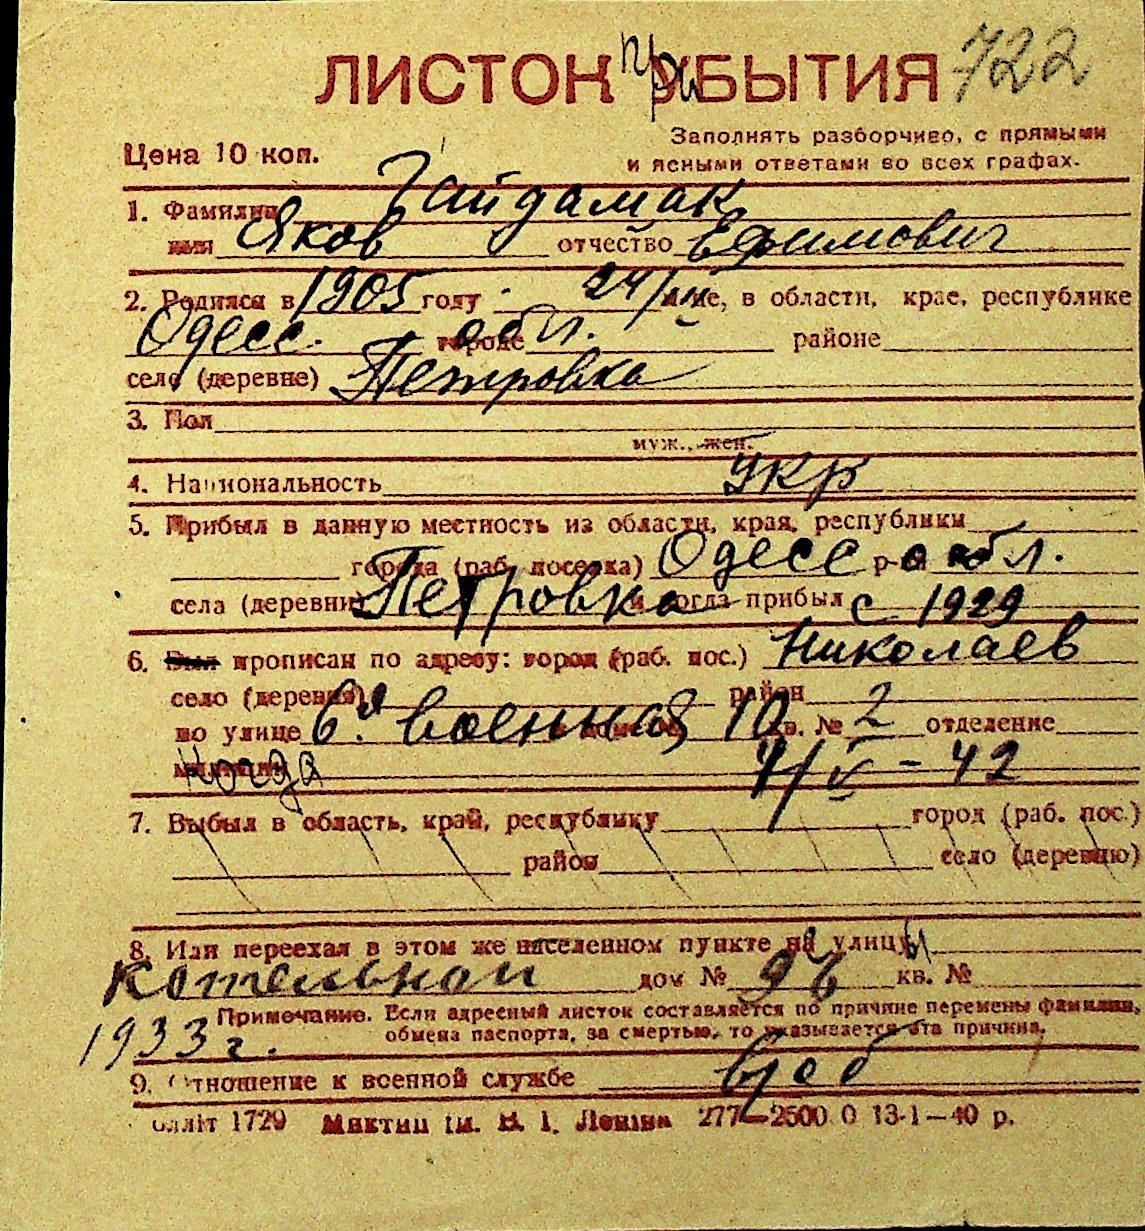 ЛИСТОК при БЫТИЯ 722
Цена 10 коп.
Заполнять разборчиво, с прямыми
и ясными ответами во всех графах.
1. Фамилия Гайдамак
имя Яков отчество Ефимович
2. Родился в 1905 году 24/ м-це, в области, крае, республике
Одесс. городе обл. районе
село (деревне) Петровка
3. Пол
муж., жен.
4. Национальность Укр
5. Прибыл в данную местность из области, края, республики
города (раб. поселка) Одесс р-на обл.
села (деревни) Петровка и когда прибыл с 1929
6. Был прописан по адресу: город (раб. пос.) Николаев
село (деревня) район
по улице 6я военная 10 кв. № 2 отделение
милиции когда 7/V - 42
7. Выбыл в область, край, республику город (раб. пос.)
район село (деревню)
8. Или переехал в этом же населенном пункте на улицу
Котельной дом № 96 кв. №
Примечание. Если адресный листок составляется по причине перемены фамилии,
1933 г. обмена паспорта, за смертью, то указывается эта причина.
9. Отношение к военной службе
1729 ім. В. І. Леніна 277—2500 0 13-1—40 р.